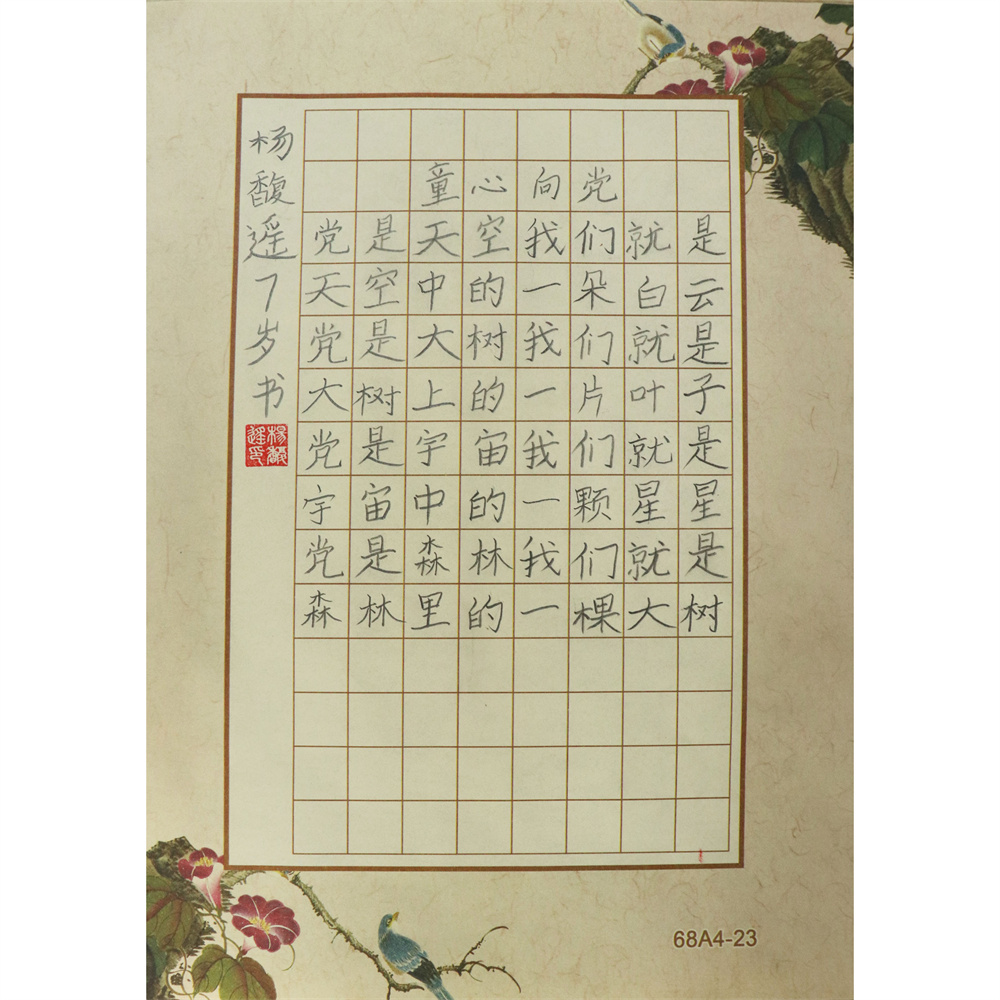 童心向党
党是天空我们就是
天空中的一朵白云
党是大树我们就是
大树上的一片叶子
党是宇宙我们就是
宇宙中的一颗星星
党是森林我们就是
森林里的一棵大树
杨馥遥7岁书
68A4-23